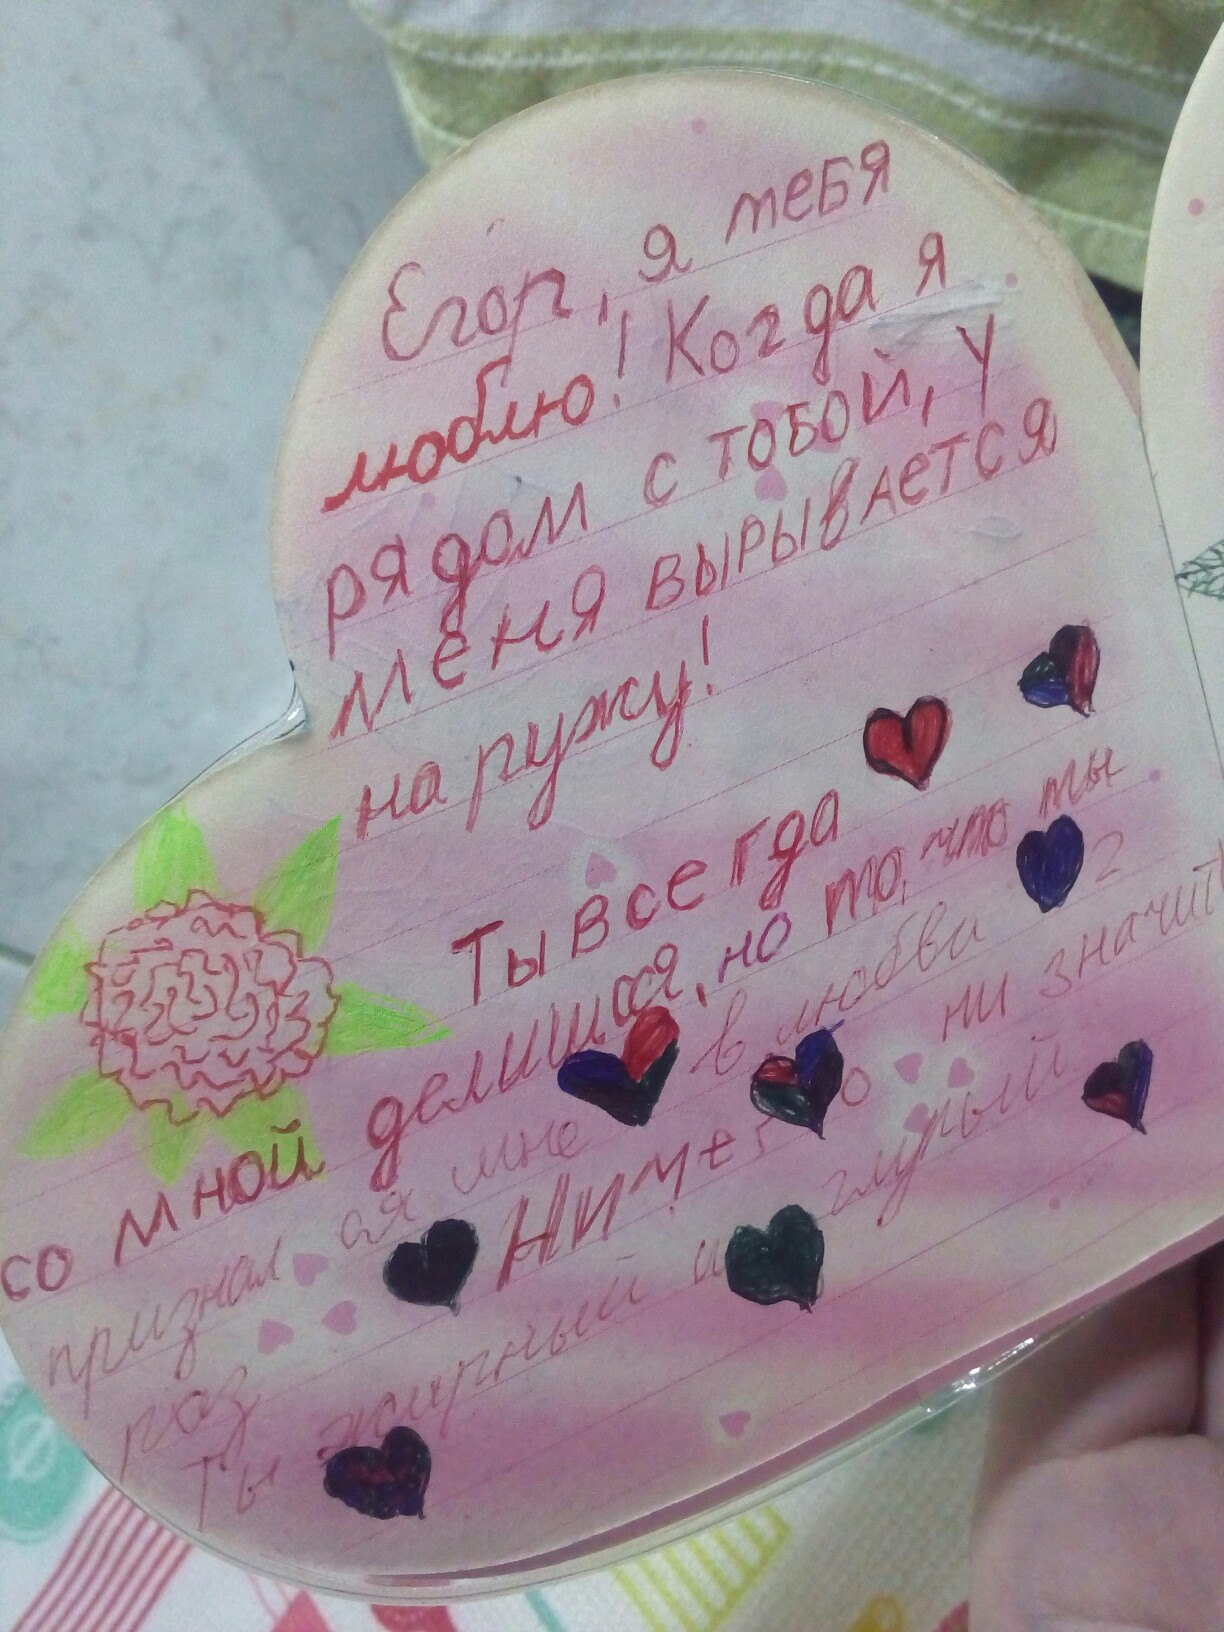 Егор, я тебя
люблю! Когда я
рядом с тобой, у
меня вырывается
на ружу!
Ты всегда
со мной делишся, но то, что ты
признал ся мне в любви 2
раз Ничего ни значит
Ты жирный и глупый